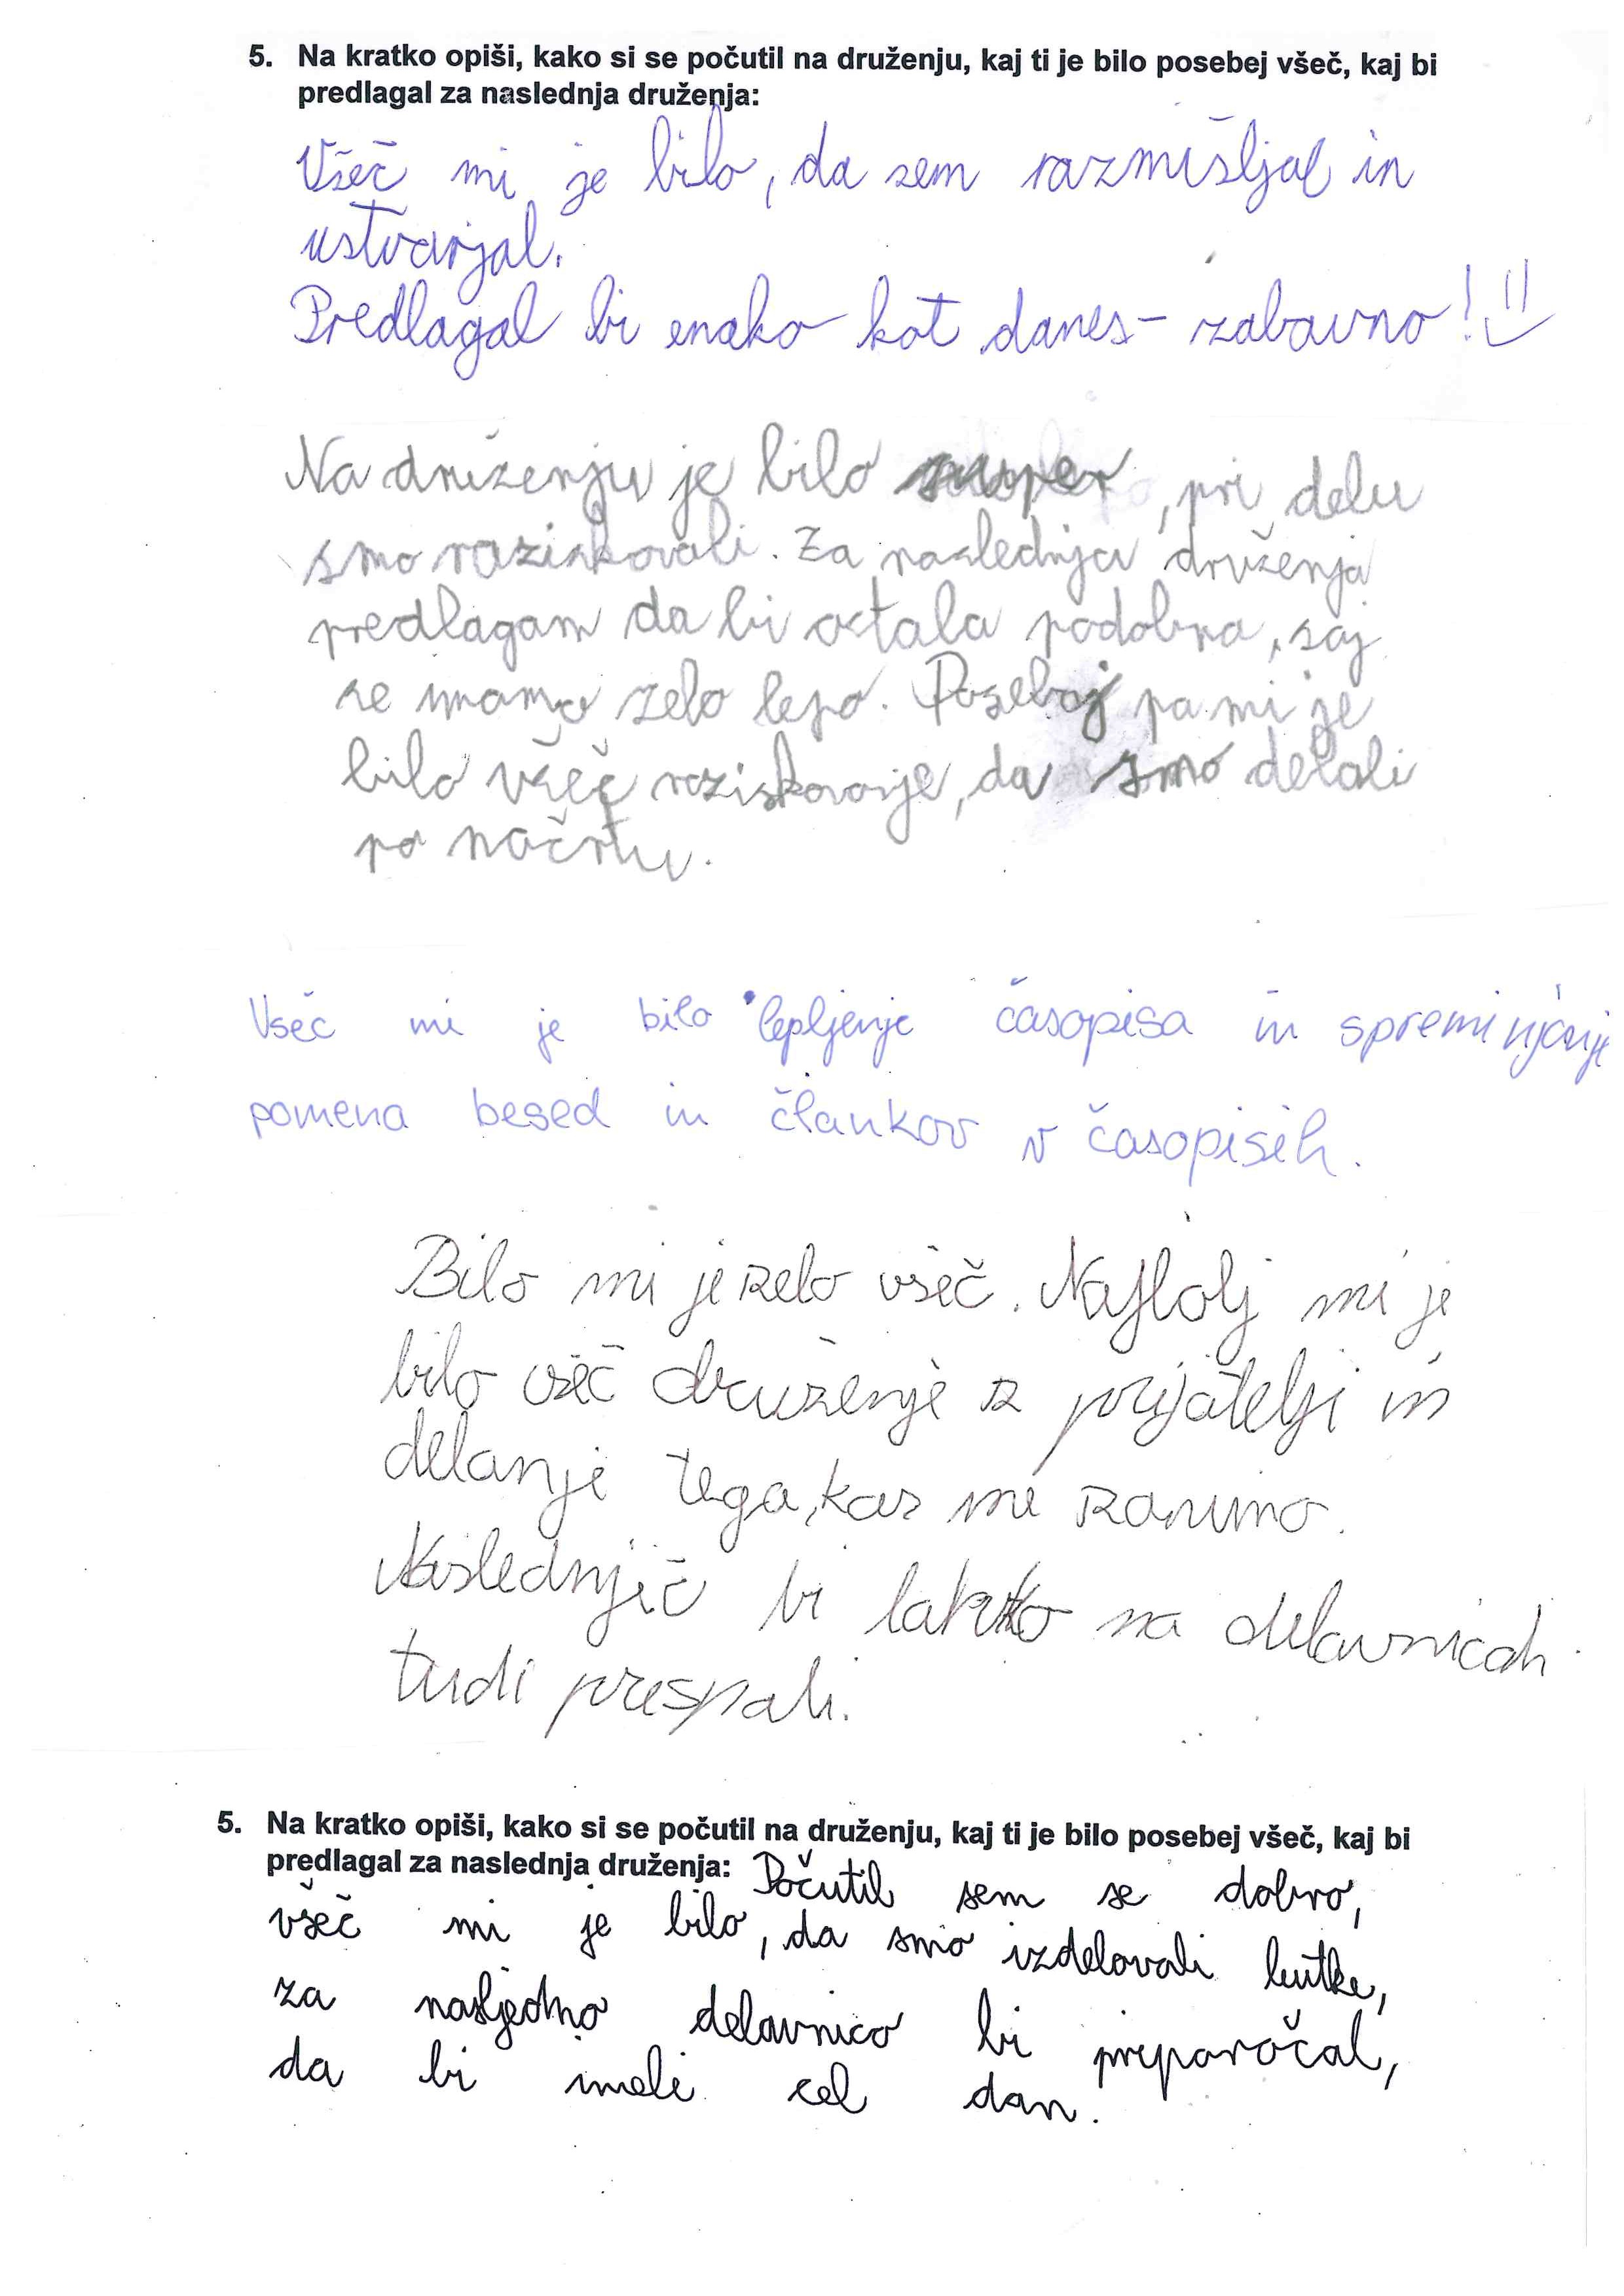 5. Na kratko opiši, kako si se počutil na druženju, kaj ti je bilo posebej všeč, kaj bi
predlagal za naslednja druženja:
Všeč mi je bilo, da sem razmišljal in
ustvarjal.
Predlagal bi enako kot danes - zabavno! :)
Na druženju je bilo super, pri delu
smo raziskovali. Za naslednja druženja
predlagam da bi ostala podobna, saj
se imamo zelo lepo. Posebej pa mi je
bilo všeč raziskovanje, da smo delali
po načrtu.
Všeč mi je bilo lepljenje časopisa in spreminjanje
pomena besed in člankov v časopisih.
Bilo mi je zelo všeč. Najbolj mi je
bilo všeč druženje z prijatelji in
delanje tega, kar me zanima.
Naslednjič bi lahko na delavnicah
tudi prespali.
5. Na kratko opiši, kako si se počutil na druženju, kaj ti je bilo posebej všeč, kaj bi
predlagal za naslednja druženja: Počutil sem se dobro,
všeč mi je bilo, da smo izdelovali lutke,
za nasljedno delavnico bi priporočal,
da bi imeli cel dan.